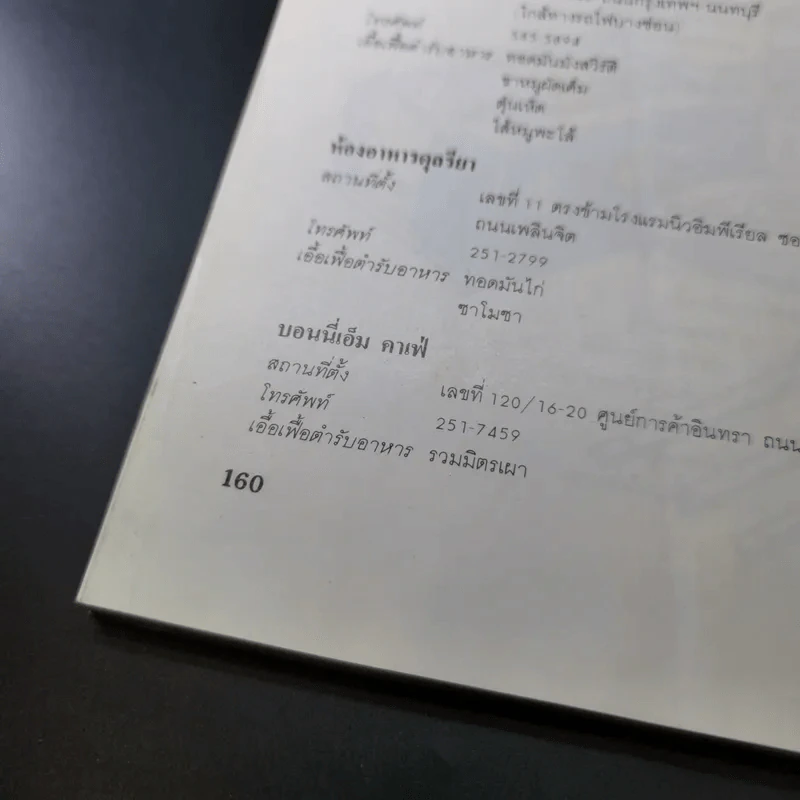 นนทบุรี
(ใกล้ทางรถไฟบางซ่อน)
โทรศัพท์
เอื้อเฟื้อตำรับอาหาร ทอดมันมังสวิรัติ
ขาหมูผัดเค็ม
ตุ๋นเห็ด
ไส้หมูพะโล้
ห้องอาหารดุสรียา
สถานที่ตั้ง เลขที่ 11 ตรงข้ามโรงแรมนิวอิมพีเรียล
ถนนเพลินจิต
โทรศัพท์ 251-2799
เอื้อเฟื้อตำรับอาหาร ทอดมันไก่
ซาโมซา
บอนนี่เอ็ม คาเฟ่
สถานที่ตั้ง เลขที่ 120/16-20 ศูนย์การค้าอินทรา ถนน
โทรศัพท์ 251-7459
เอื้อเฟื้อตำรับอาหาร รวมมิตรเผา
160